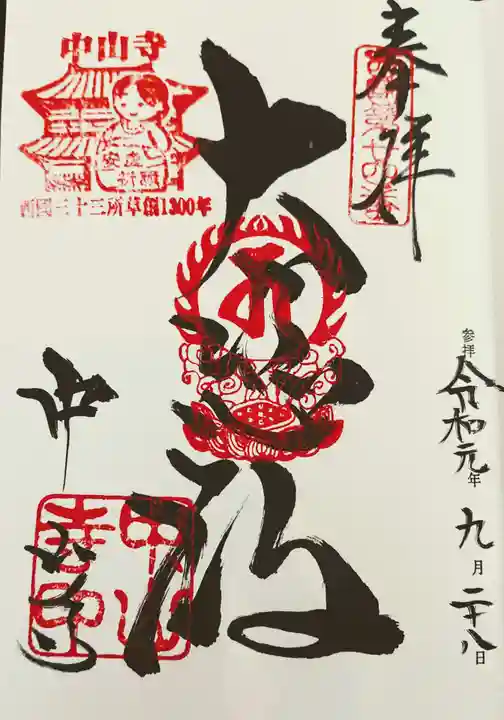 奉拝
参拝 令和元年 九月二十八日
大悲殿
中山寺
中山寺
安産
祈願
西國三十三所草創1300年
中山寺印